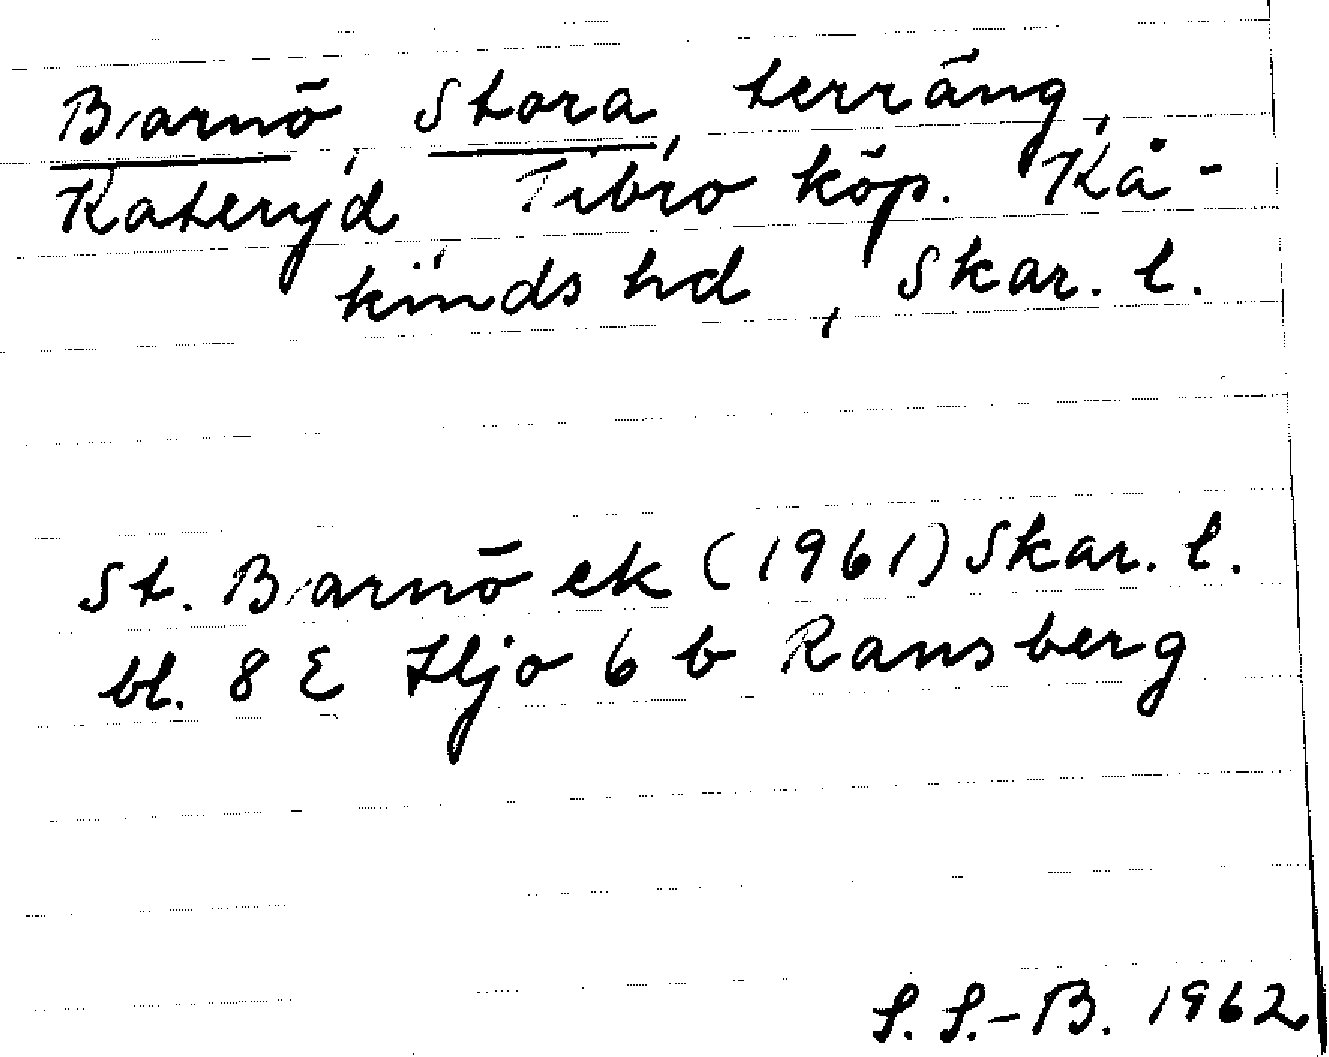 Barnö, Stora, terräng,
Kateryd, Tibro köp. Kå-
kinds hd, Skar. l.
St. Barnö ek (1961) Skar. l.
bl. 8 E Hjo 6 b Ransberg
S. S.-B. 1962